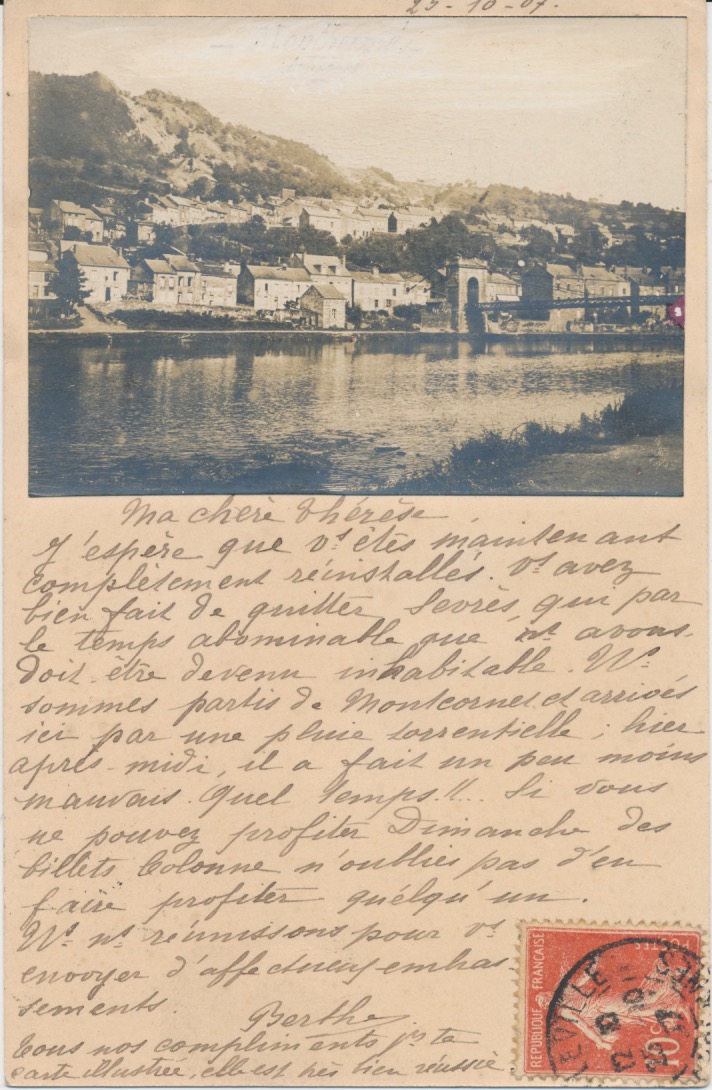 23-10-07.
Ma chère Thérèse
J'espère que vs êtes maintenant
complètement réinstallés. Vs avez
bien fait de quitter Sevrès, qui par
le temps abominable que ns avons
doit être devenu inhabitable. Ns
sommes partis de Montcornet et arrivés
ici par une pluie torrentielle ; hier
après-midi, il a fait un peu moins
mauvais. Quel temps.!!... Si vous
ne pouvez profiter Dimanche des
billets Colonne n'oublies pas d'en
faire profiter quélqu'un.
Ns ns réunissons pour vs
envoyer d'affectueux embras
sements
Berthe
Tous nos compliments pr ta
carte illustrée, elle est très bien réussie
REPUBLIQUE FRANÇAISE
POSTES
10c